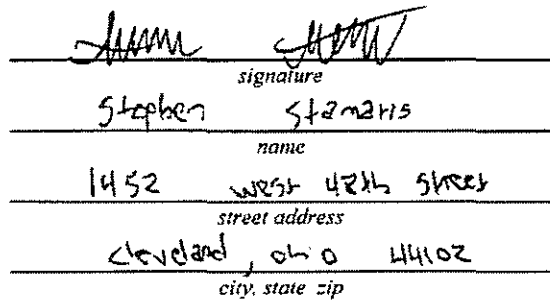 signature
Stephen Stamaris
name
1452 west 48th street
street address
cleveland, ohio 44102
city, state zip